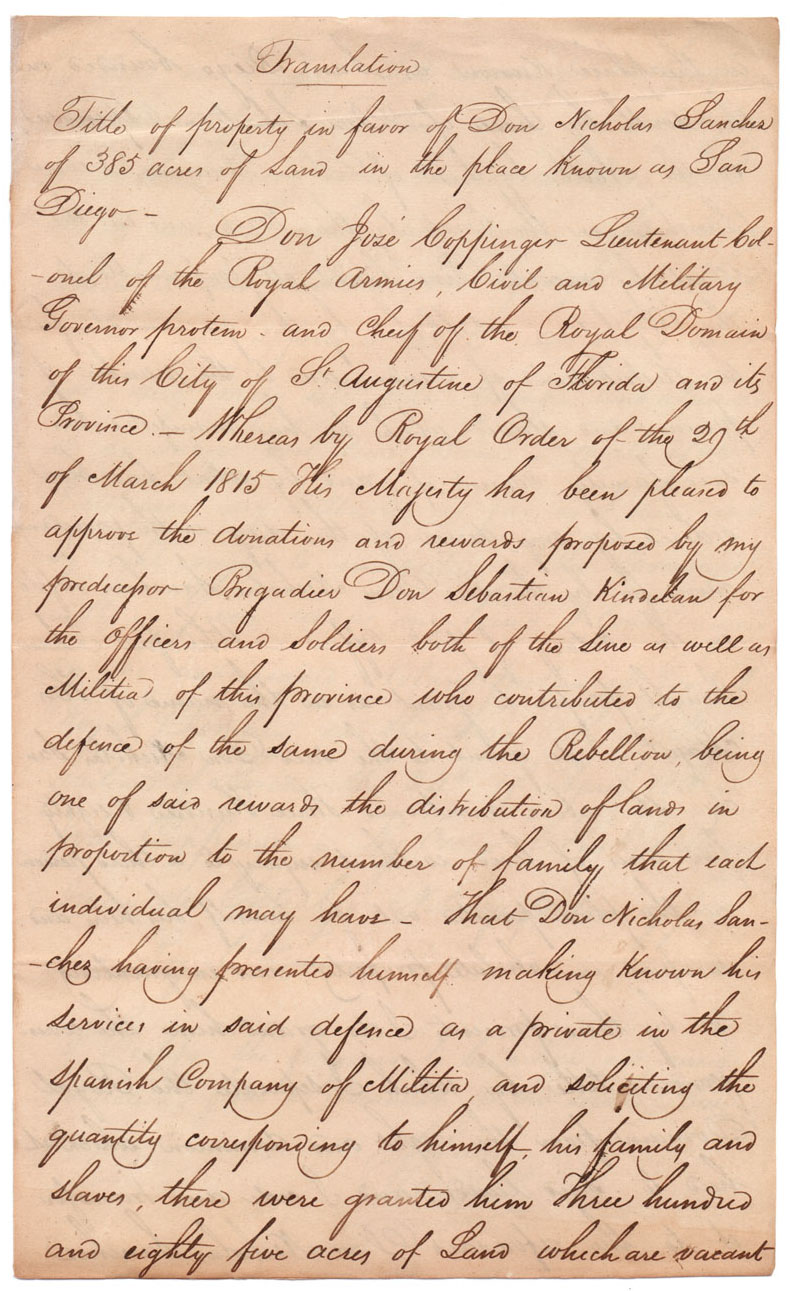 Translation
Title of property in favor of Don Nicholas Sanchez
of 385 acres of Land in the place known as San
Diego -
Don José Coppinger Lieutenant Col-
-onel of the Royal Armies, Civil and Military
Governor protem - and Cheif of the Royal Domain
of this City of St Augustine of Florida and its
Province. - Whereas by Royal Order of the 29th
of March 1815 His Majesty has been pleased to
approve the donations and rewards proposed by my
predecessor Brigadier Don Sebastian Kindelan for
the officers and Soldiers both of the Line as well as
Militia of this province who contributed to the
defence of the same during the Rebellion, being
one of said rewards the distribution of lands in
proportion to the number of family that each
individual may have - That Don Nicholas San-
-chez having presented himself making Known his
services in said defence as a private in the
Spanish Company of Militia, and soliciting the
quantity corresponding to himself, his family and
slaves, there were granted him Three hundred
and eighty five acres of Land which are vacant